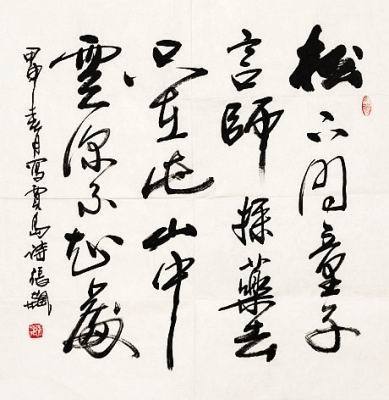 松下問童子
言師採藥去
只在此山中
雲深不知處
甲申春月寫賈島詩張飆